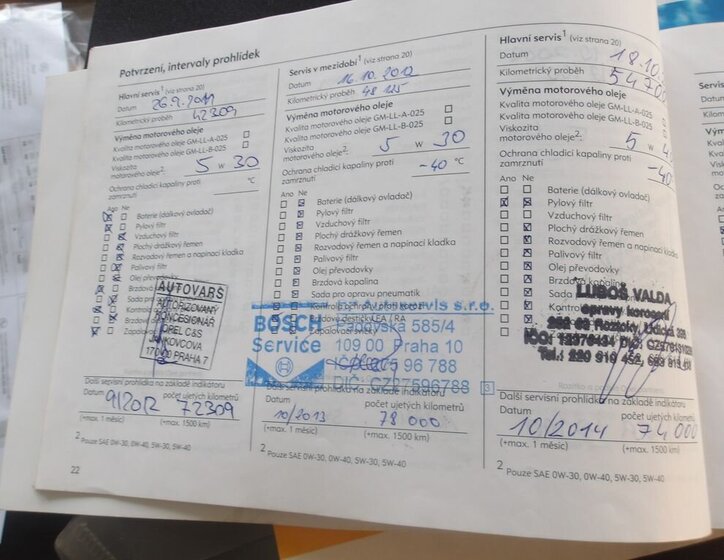 Potvrzení, intervaly prohlídek
Hlavní servis¹ (viz strana 20)
Datum 26.9.2011
Kilometrický proběh 42309
Výměna motorového oleje
Kvalita motorového oleje GM-LL-A-025
Kvalita motorového oleje GM-LL-B-025
Viskozita
motorového oleje²: 5 W 30
Ochrana chladicí kapaliny proti
zamrznutí °C
Ano Ne
Baterie (dálkový ovladač)
Pylový filtr
Vzduchový filtr
Plochý drážkový řemen
Rozvodový řemen a napínací kladka
Palivový filtr
Olej převodovky
Brzdová
Sada pro
Kontrola
Brzdové
Zapalovací
AUTOVARŠ
AUTORIZOVANÝ
KONCESIONÁŘ
OPEL C&S
JANKOVCOVA
17000 PRAHA 7
Další servisní prohlídka na základě indikátoru
Datum počet ujetých kilometrů
9/2012 72309
(+max. 1 měsíc) (+max. 1500 km)
² Pouze SAE 0W-30, 0W-40, 5W-30, 5W-40
22
Servis v mezidobí¹ (viz strana 20)
Datum 16.10.2012
Kilometrický proběh 48 125
Výměna motorového oleje
Kvalita motorového oleje GM-LL-A-025
Kvalita motorového oleje GM-LL-B-025
Viskozita
motorového oleje²: 5 W 30
Ochrana chladicí kapaliny proti
zamrznutí -40 °C
Ano Ne
Baterie (dálkový ovladač)
Pylový filtr
Vzduchový filtr
Plochý drážkový řemen
Rozvodový řemen a napínací kladka
Palivový filtr
Olej převodovky
Brzdová kapalina
Sada pro opravu pneumatik
Brzdové destičky FA / RA
Zapalovací svíčky
BOSCH
Service
Autoservis s.r.o.
585/4
109 00 Praha 10
IČ: 275 96 788
DIČ: CZ27596788
3
Další servisní prohlídka na základě indikátoru
Datum počet ujetých kilometrů
10/2013 78 000
(+max. 1 měsíc) (+max. 1500 km)
² Pouze SAE 0W-30, 0W-40, 5W-30, 5W-40
Hlavní servis¹ (viz strana 20)
Datum 18.10.
Kilometrický proběh 54 700
Výměna motorového oleje
Kvalita motorového oleje GM-LL-A-025
Kvalita motorového oleje GM-LL-B-025
Viskozita
motorového oleje²: 5 W 4
Ochrana chladicí kapaliny proti
zamrznutí -40
Ano Ne
Baterie (dálkový ovladač)
Pylový filtr
Vzduchový filtr
Plochý drážkový řemen
Rozvodový řemen a napínací kladka
Palivový filtr
Olej převodovky
Brzdová kapalina
Sada
Kontrola
Brzdové
LUBOŠ VALDA
opravy karoserií
252 63 Roztoky,
IČO: DIČ:
Tel.: 220 910 452,
Další servisní prohlídka na základě indikátoru
Datum počet ujetých kilometrů
10/2014 74 000
(+max. 1 měsíc) (+max. 1500 km)
² Pouze SAE 0W-30, 0W-40, 5W-30, 5W-40